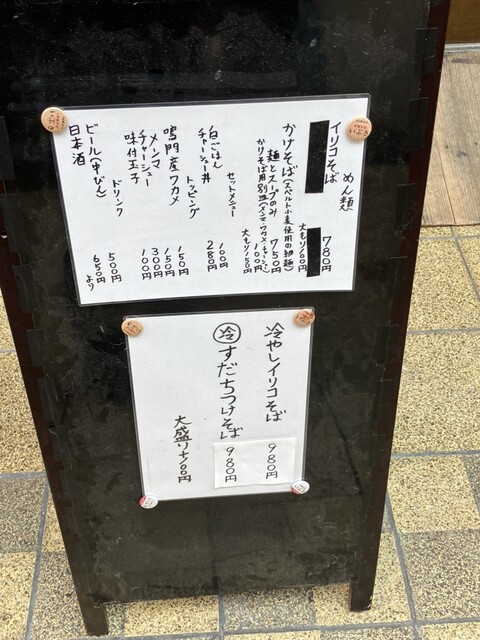 めん類
イリコそば 780円
大もり100円
かけそば(スペルト小麦使用の細麺)
麺とスープのみ 750円
かけそば用別皿(メンマ・ワカメ・チャーシュー) 100円
大もり150円
セットメニュー
白ごはん 100円
チャーシュー丼 280円
トッピング
鳴門産ワカメ 150円
メンマ 150円
チャーシュー 300円
味付玉子 100円
ドリンク
ビール(中びん) 500円
日本酒 600円より
冷やしイリコそば 980円
冷 すだちつけそば 980円
大盛り+100円